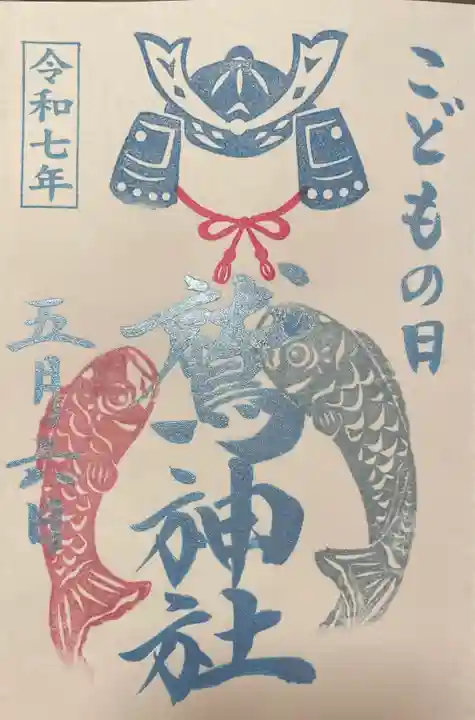 こどもの日
鷹神社
令和七年
五月六日